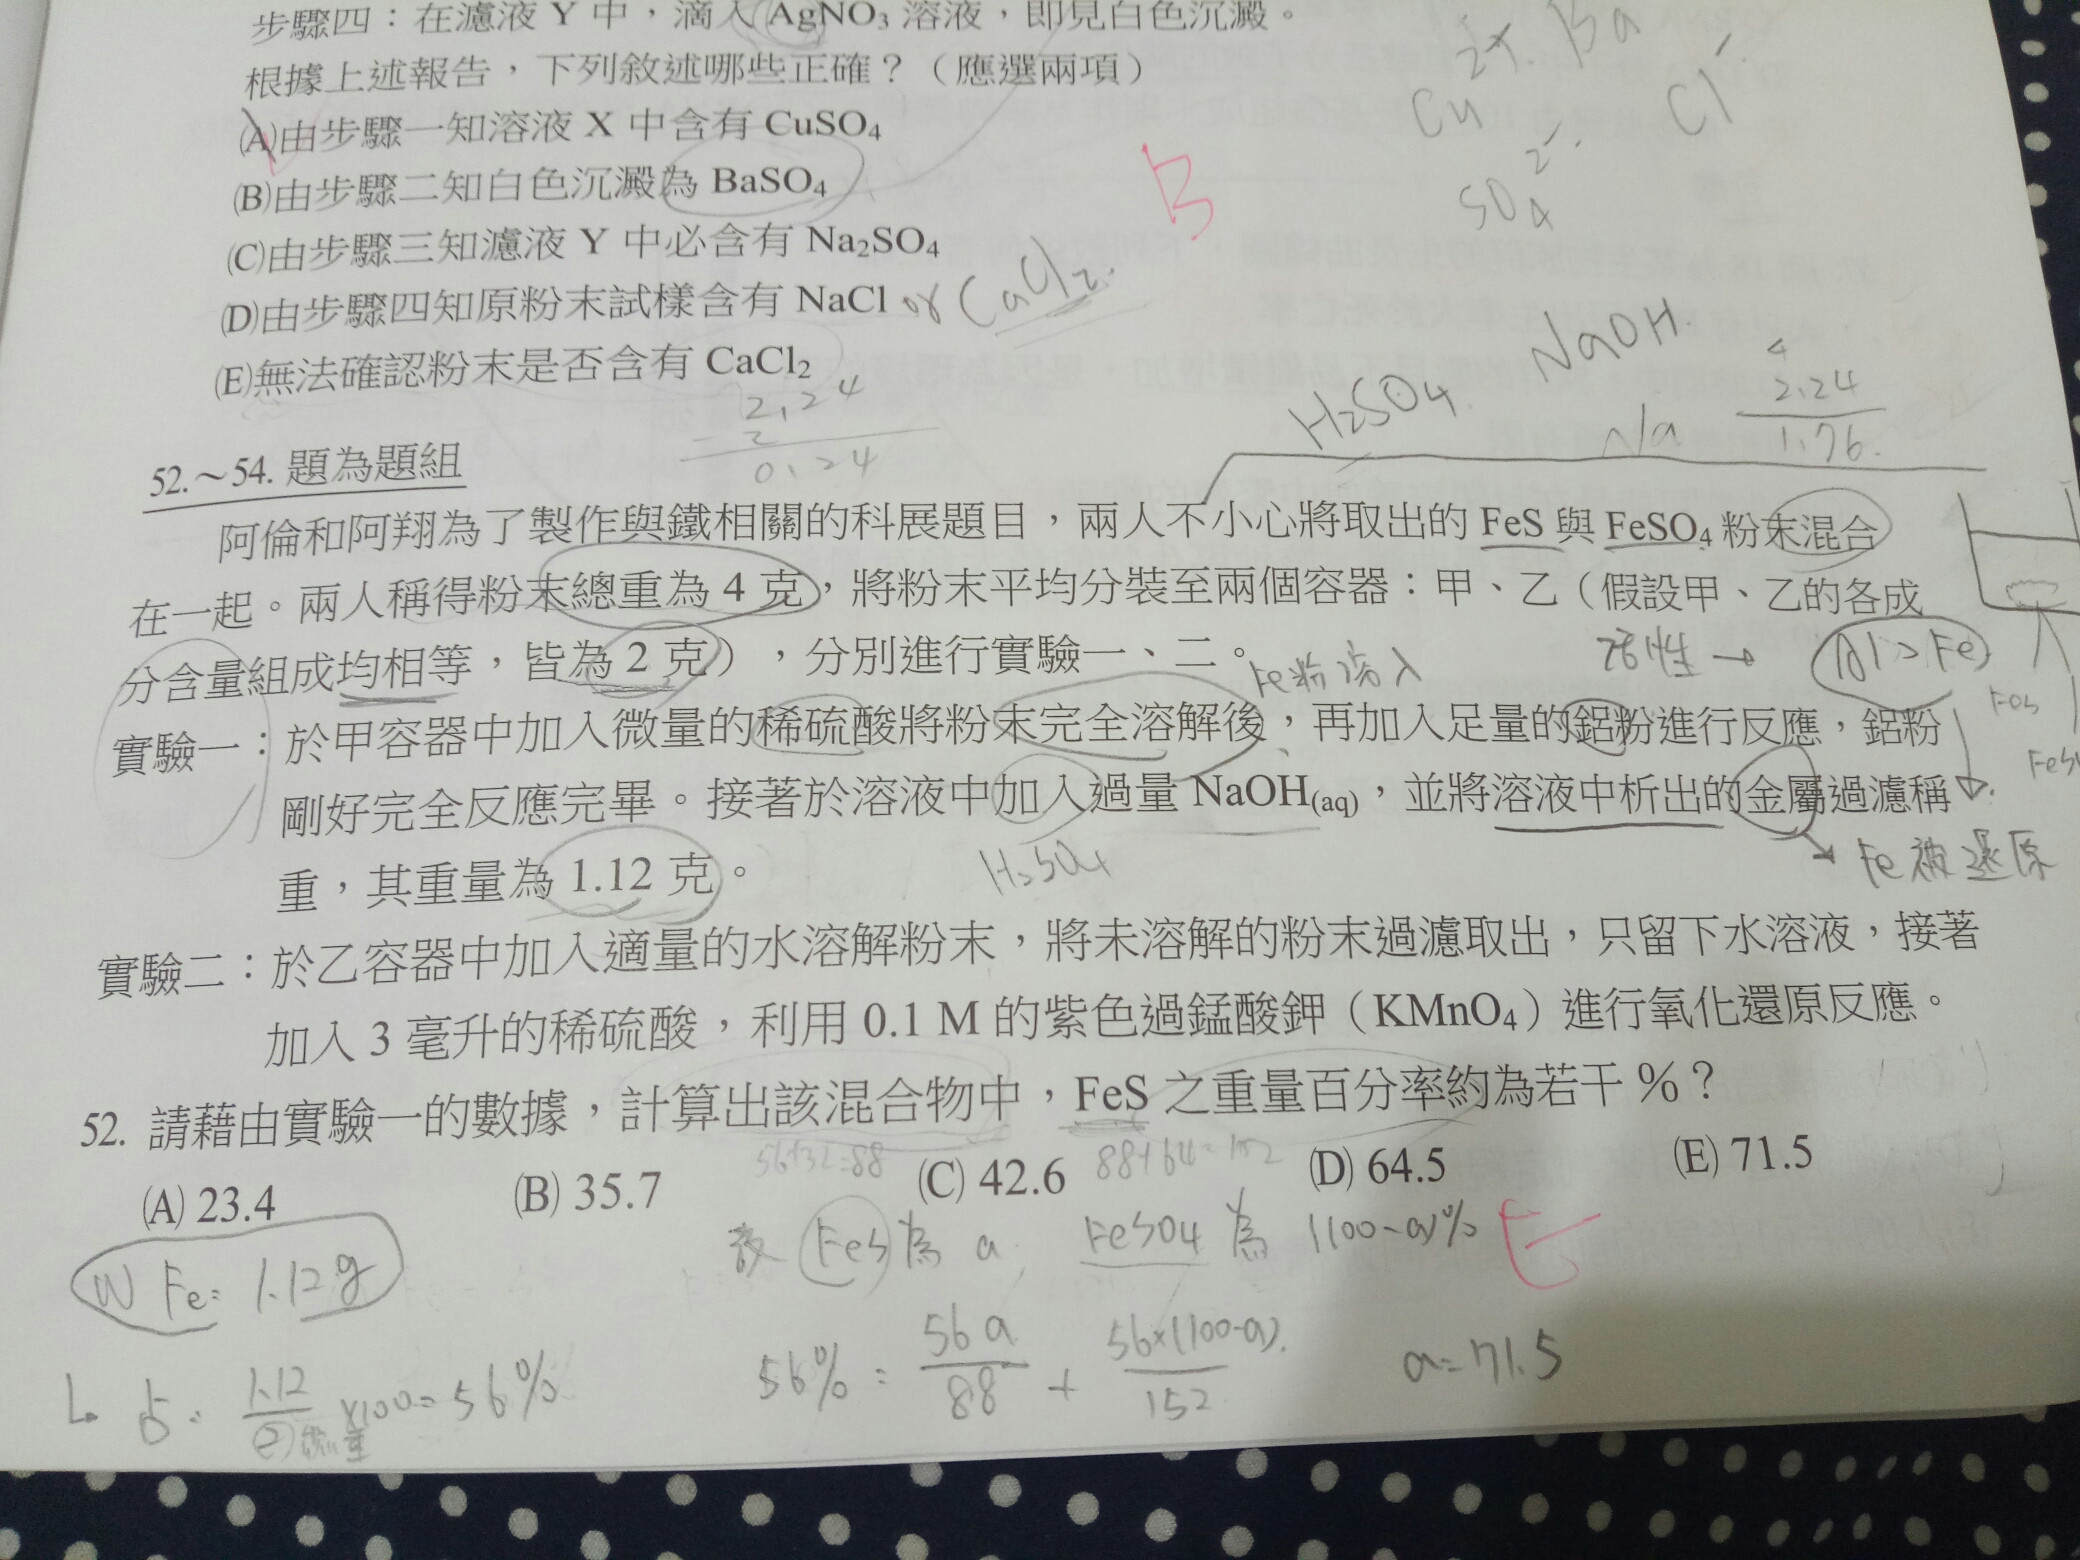 步驟四：在濾液 Y 中，滴入 AgNO₃ 溶液，即見白色沉澱。
根據上述報告，下列敘述哪些正確？（應選兩項）
(A)由步驟一知溶液 X 中含有 CuSO₄
(B)由步驟二知白色沉澱為 BaSO₄
(C)由步驟三知濾液 Y 中必含有 Na₂SO₄
(D)由步驟四知原粉末試樣含有 NaCl or CaCl₂.
(E)無法確認粉末是否含有 CaCl₂
Cu²⁺. Ba
Cl⁻
SO₄²⁻.
B
2.24
2
0.24
H₂SO₄
NaOH.
Na
4
2.24
1.76.
52.～54. 題為題組
阿倫和阿翔為了製作與鐵相關的科展題目，兩人不小心將取出的 FeS 與 FeSO₄ 粉末混合
在一起。兩人稱得粉末總重為 4 克，將粉末平均分裝至兩個容器：甲、乙（假設甲、乙的各成
分含量組成均相等，皆為 2 克），分別進行實驗一、二。
活性 → Al > Fe
實驗一：於甲容器中加入微量的稀硫酸將粉末完全溶解後，再加入足量的鋁粉進行反應，鋁粉
剛好完全反應完畢。接著於溶液中加入過量 NaOH(aq)，並將溶液中析出的金屬過濾稱
重，其重量為 1.12 克。
H₂SO₄
Fe 被還原
實驗二：於乙容器中加入適量的水溶解粉末，將未溶解的粉末過濾取出，只留下水溶液，接著
加入 3 毫升的稀硫酸，利用 0.1 M 的紫色過錳酸鉀（KMnO₄）進行氧化還原反應。
52. 請藉由實驗一的數據，計算出該混合物中，FeS 之重量百分率約為若干 %？
56+32=88
88+64=152
(A) 23.4 (B) 35.7 (C) 42.6 (D) 64.5 (E) 71.5
設 FeS 為 a FeSO₄ 為 (100-a)%
E
W Fe: 1.12g
56% = 56a/88 + 56×(100-a)/152
a=71.5
↳ 占: 1.12/2 ×100=56%